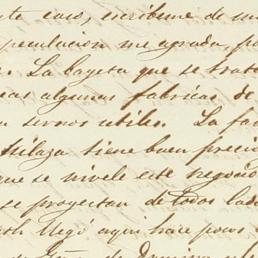 te caso, escribeme de su
peculacion me agrada, po
La bayeta que se trata
as algunas fabricas de
n sernos utiles. La fa
hilaza tiene buen precio
que se nivele este negocio
se proyectan de todos lado
llegó aqui hace pocos